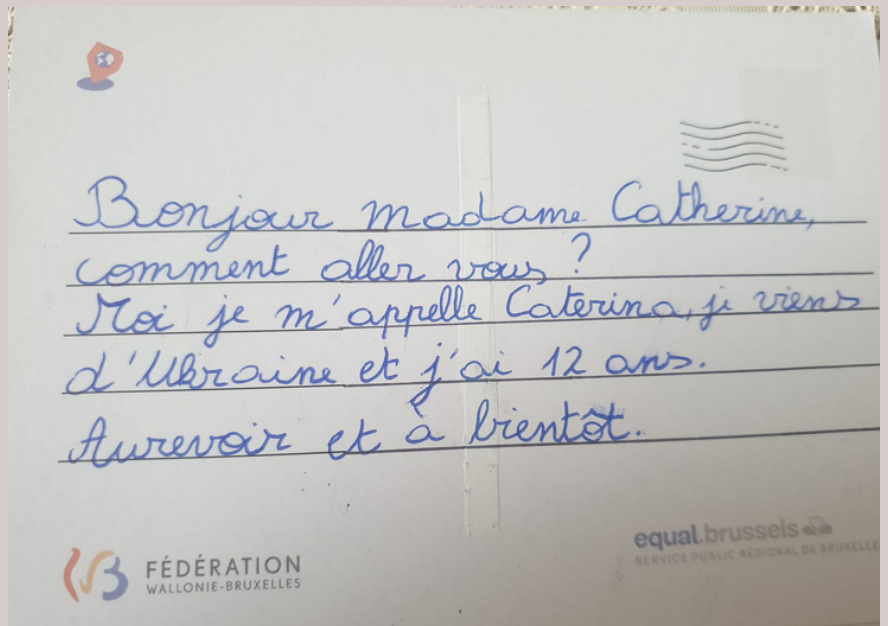 Bonjour madame Catherine,
comment aller vous ?
Moi je m'appelle Caterina, je viens
d'Ukraine et j'ai 12 ans.
Aurevoir et à bientôt.
FÉDÉRATION
WALLONIE-BRUXELLES
equal.brussels
SERVICE PUBLIC RÉGIONAL DE BRUXELLE